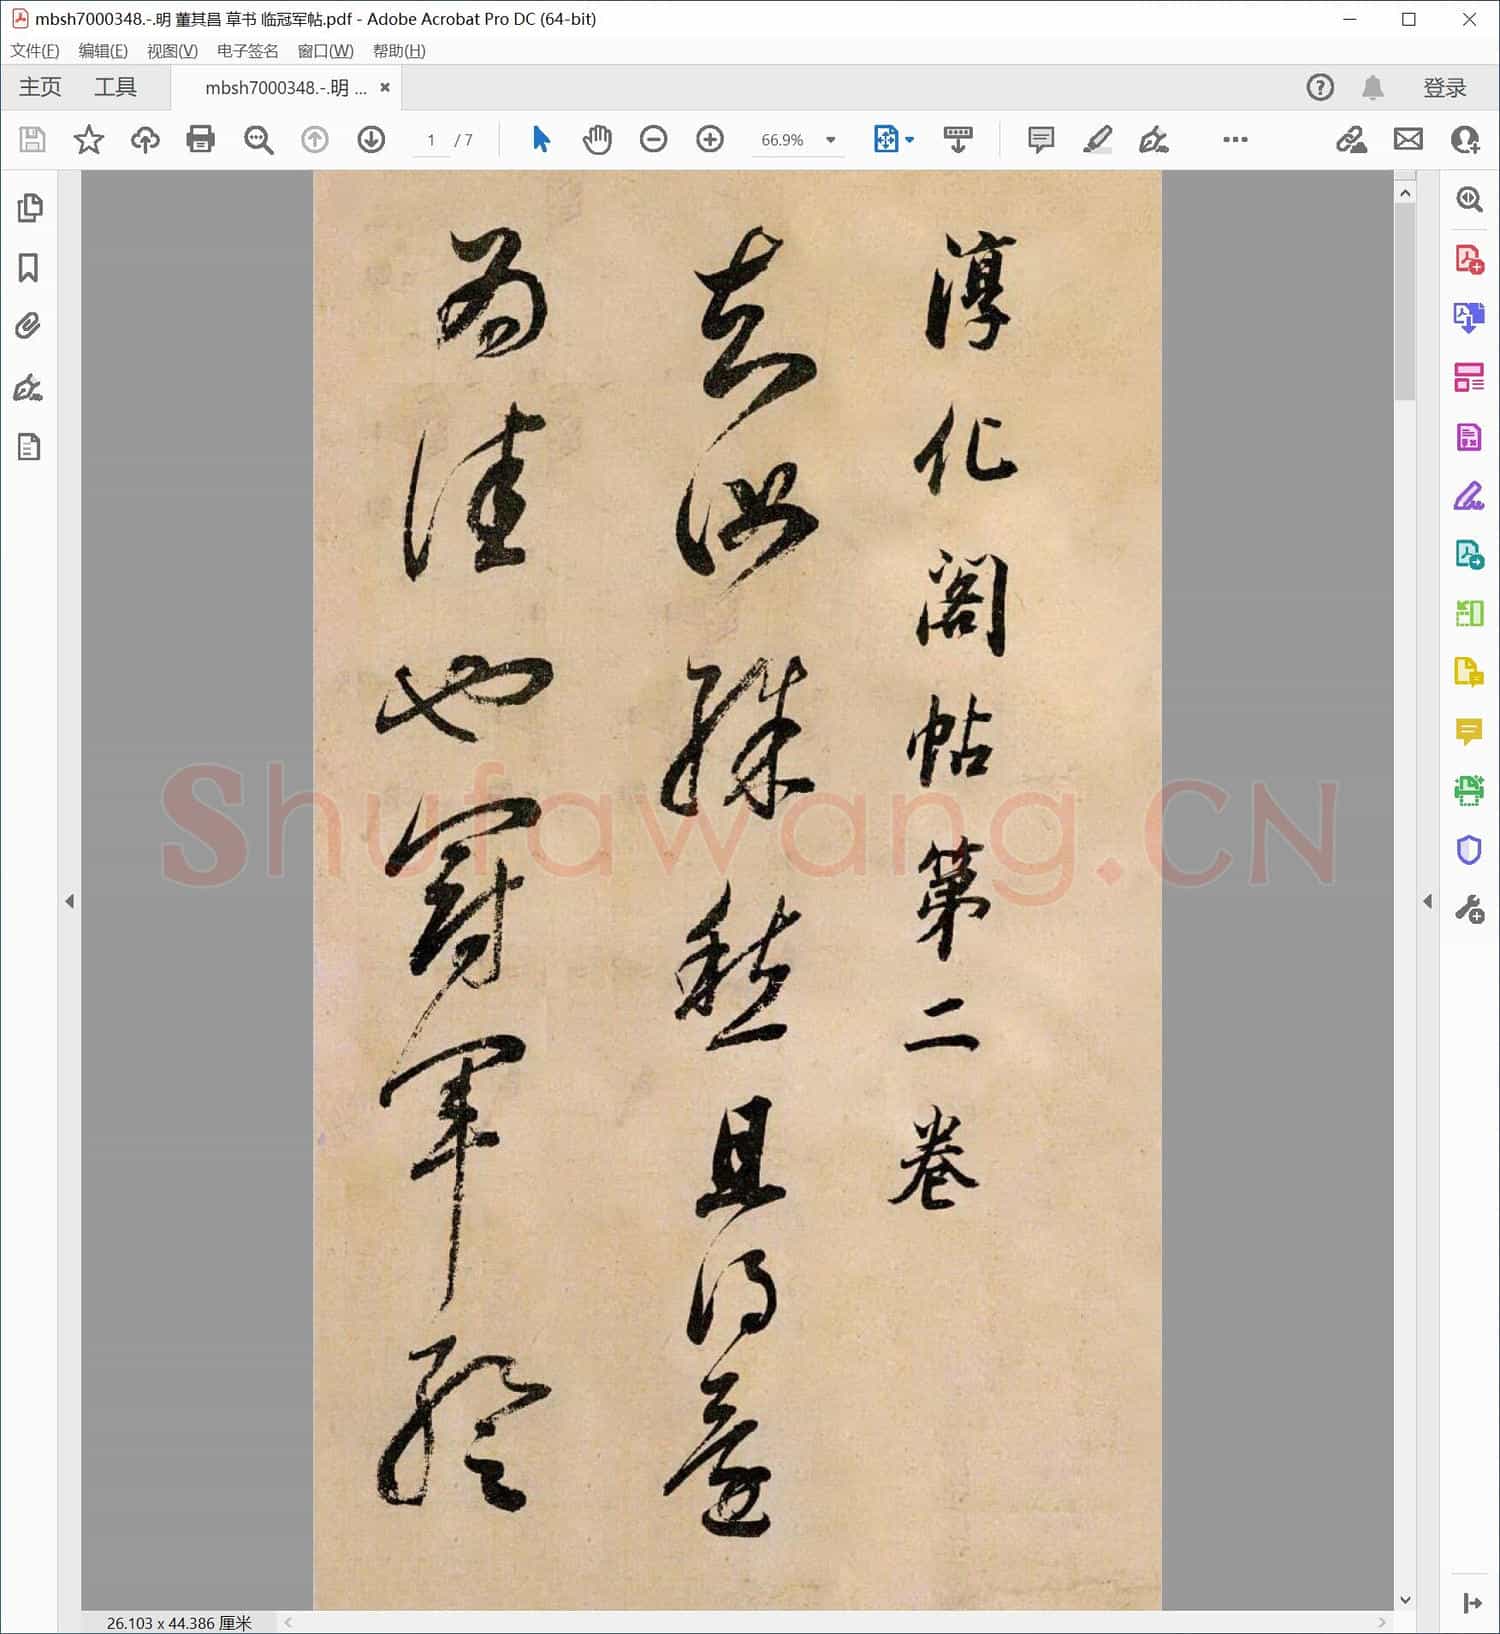 mbsh7000348.-.明 董其昌 草书 临冠军帖.pdf - Adobe Acrobat Pro DC (64-bit)
文件(F) 编辑(E) 视图(V) 电子签名 窗口(W) 帮助(H)
主页 工具 mbsh7000348.-.明 ... 登录
1 / 7 66.9%
淳化閣帖第二卷
知汝殊愁且得還
為佳也冠軍終
Shufawang.CN
26.103 x 44.386 厘米